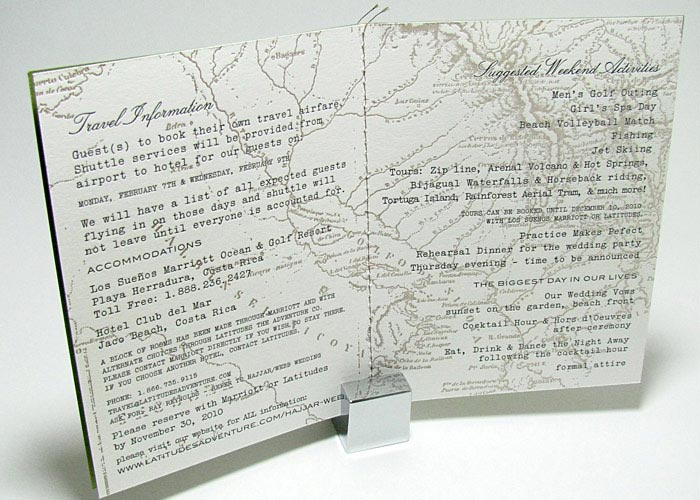 Travel Information
Guest(s) to book their own travel airfare.
Shuttle services will be provided from
airport to hotel for our guests on:
MONDAY, FEBRUARY 7TH & WEDNESDAY, FEBRUARY 9TH
We will have a list of all expected guests
flying in on those days and shuttle will
not leave until everyone is accounted for.
ACCOMMODATIONS
Los Sueños Marriott Ocean & Golf Resort
Playa Herradura, Costa Rica
Toll Free: 1.888.236.2427
Hotel Club del Mar
Jaco Beach, Costa Rica
A BLOCK OF ROOMS HAS BEEN MADE THROUGH MARRIOTT AND WITH
ALTERNATE CHOICES THROUGH LATITUDES THE ADVENTURE CO.
PLEASE CONTACT MARRIOTT DIRECTLY IF YOU WISH TO STAY THERE.
IF YOU CHOOSE ANOTHER HOTEL, CONTACT LATITUDES.
PHONE: 1.866.735.9115
TRAVEL@LATITUDESADVENTURE.COM
ASK FOR: RAY REYNOLDS HAJJAR/WEBB WEDDING
Please reserve with Marriott or Latitudes
by November 30, 2010
please visit our website for ALL information:
WWW.LATITUDESADVENTURE.COM/HAJJAR-WEBB
Suggested Weekend Activities
Men's Golf Outing
Girl's Spa Day
Beach Volleyball Match
Fishing
Jet Skiing
Tours: Zip line, Arenal Volcano & Hot Springs,
Bijagual Waterfalls & Horseback riding,
Tortuga Island, Rainforest Aerial Tram, & much more!
TOURS CAN BE BOOKED UNTIL DECEMBER 2010
WITH LOS SUENOS MARRIOTT OR LATITUDES.
Practice Makes Pefect
Rehearsal Dinner for the wedding party
Thursday evening - time to be announced
THE BIGGEST DAY IN OUR LIVES
Our Wedding Vows
sunset on the garden, beach front
Cocktail Hour & Hors d'Oeuvres
after ceremony
Eat, Drink & Dance the Night Away
following the cocktail hour
formal attire